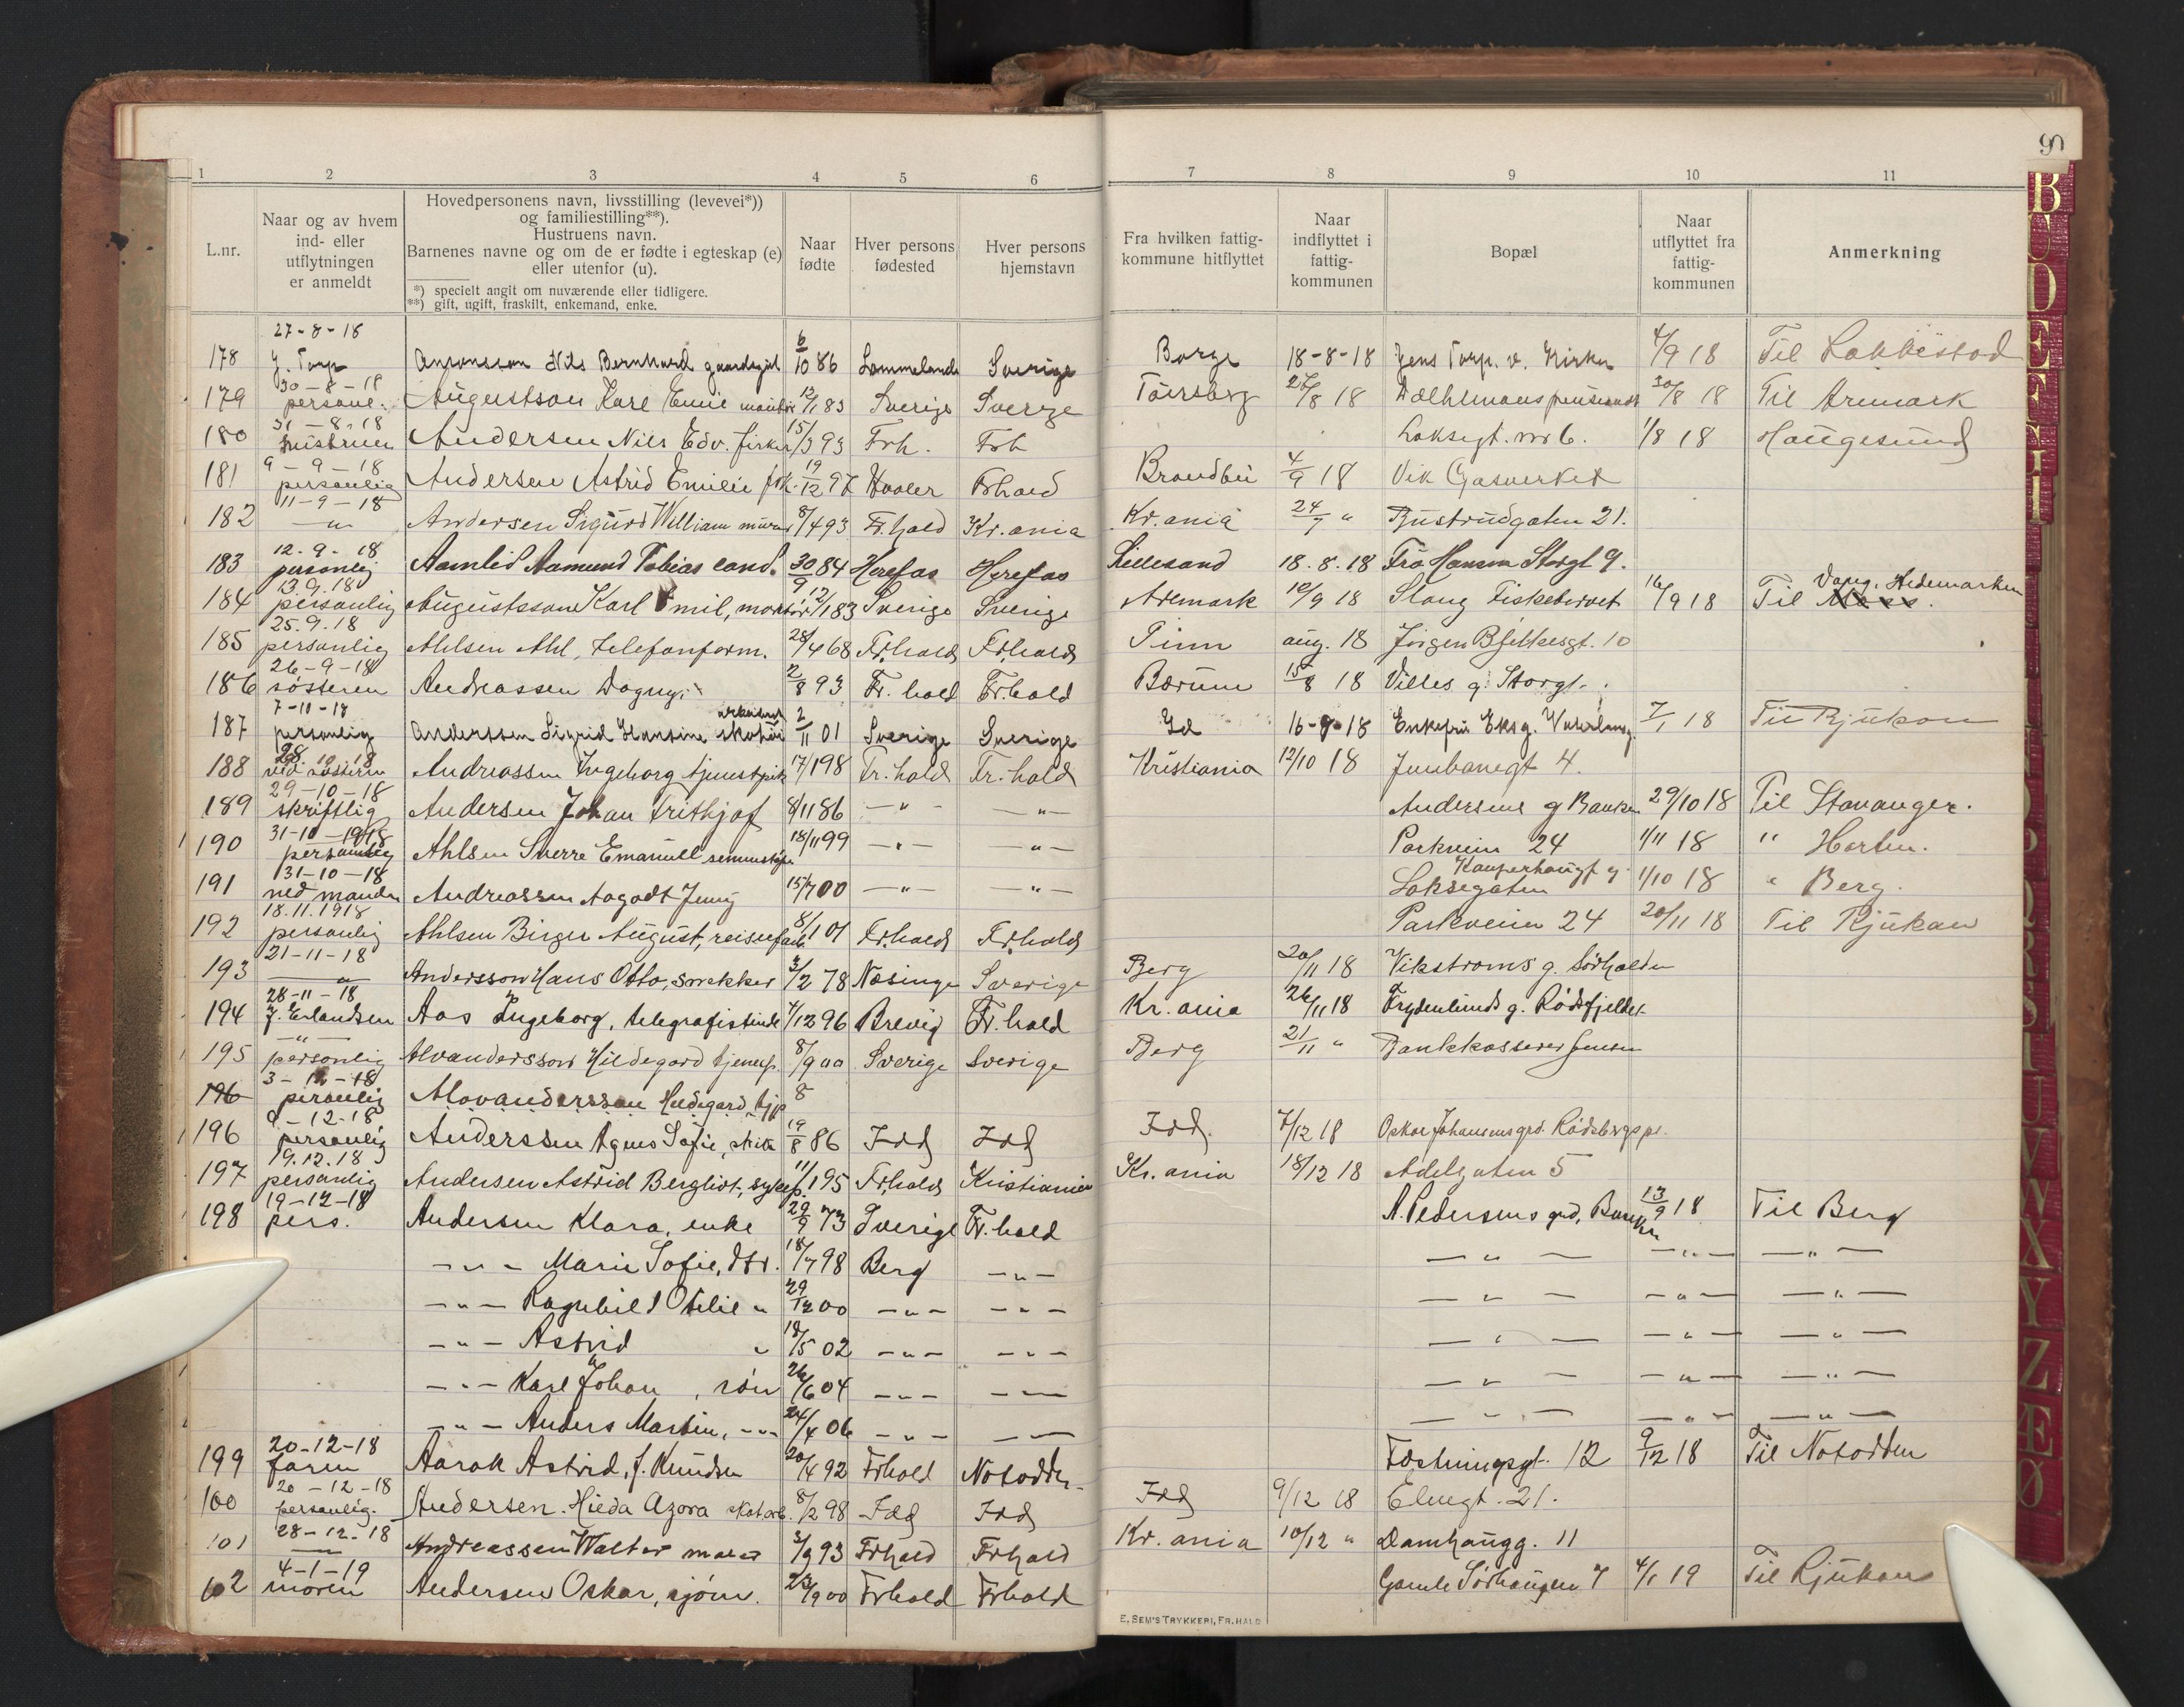 9
1 2 3 4 5 6 7 8 9 10 11
L.nr.
Naar og av hvem
ind- eller
utflytningen
er anmeldt
Hovedpersonens navn, livsstilling (levevei*))
og familiestilling**).
Hustruens navn.
Barnenes navne og om de er fødte i egteskap (e)
eller utenfor (u).
*) specielt angit om nuværende eller tidligere.
**) gift, ugift, fraskilt, enkemand, enke.
Naar
fødte
Hver persons
fødested
Hver persons
hjemstavn
Fra hvilken fattig-
kommune hitflyttet
Naar
indflyttet i
fattig-
kommunen
Bopæl
Naar
utflyttet fra
fattig-
kommunen
Anmerkning
27-8-18
178 J. Torp Aronsson Nils Bernhard 6/10 86 Sverige Borge 18-8-18 Jens Torp. v. Kirken 4/9 18 Til
30-8-18
179 personl. Augustson Karl Emil montör 12/1 83 Sverige Sverge 30/8 18 Til Aremark
31-8-18
180 hustruen Andersen Nils Edv. 15/3 93 Frh. Frh Laksegt. no 6. 1/8 18 Haugesund
9-9-18
181 personlig Andersen Astrid Emilie 19/12 97 Frhald Brandbu 4/9 18 Vik Gasverket
11-9-18
182 -"- Andersen Sigurd William murer 8/4 93 Fr.hald Kr.ania Kr.ania 24/7 " Bustrudgaten 21.
12-9-18
183 personlig Aamlid Aamund Tobias cand. 30/9 84 Herefos Herefos Lillesand 18.8.18 Frö Hansen Storgt 9.
13.9.18
184 personlig Augustsson Karl Emil, montör 12/1 83 Sverige Sverige Aremark 10/9 18 Stang Fiskebervet 16/9 18 Til Moss. Vang. Hedemarken
25.9.18
185 personlig Ahlsen Ahl, telefonform. 28/4 68 Frhald Frhald Tinn aug. 18 Jörgen Bjelkesgt. 10
26-9-18
186 søsteren Andreassen Dagny. 2/8 93 Fr.hald Fr.hald Bærum 15/8 18 Villes g. Storgt.
7-10-18
187 personlig Anderssen Sigrid Hansine 2/11 01 Sverige Sverige Id 16-9-18 7/1 18 Til Rjukan
28-10-18
188 ved søsteren Andreassen Ingeborg tjenestpik 17/1 98 Fr.hald Fr.hald Kristiania 12/10 18 Jernbanegt 4.
29-10-18
189 skriftlig Andersen Johan Frithjof 8/11 86 -"- -"- Andersens g Banken 29/10 18 Til Stavanger.
31-10-1918
190 personlig Ahlsen Sverre Emanuell 18/11 99 -"- -"- Parkveien 24 1/11 18 " Horten.
31-10-18
191 ved manden Andreassen Aagodt Jenny 15/7 00 -"- -"- Laksegaten 1/10 18 " Berg.
18.11.1918
192 personlig Ahlsen Birger August, 8/1 01 Frhald Frhald Parkveien 24 20/11 18 Til Rjukan
21-11-18
193 -"- Andersson Hans Otto, snekker 3/2 78 Næsinge Sverige Berg 20/11 18 Vikstrøms g. Sørhalden
28-11-18
194 J. Erlandsen Aas Ingeborg, telegrafistinde 4/12 96 Brevig Fr.hald Kr.ania 26/11 18 Frydenlunds g. Rødsfjeldet
-"-
195 personlig Alvandersson Hildegard tjenesp. 8/9 00 Sverige Sverige Berg 21/11 " Bankkasserer Jensen
3-12-18
196 personlig Alovanderssen Hildegard tjp 8
9-12-18
196 personlig Anderssen Agnes Sofie, 19/8 86 Idd Idd Idd. 7/12 18 Oskar Johansens grd. Rødsbergs pl.
19.12.18
197 personlig Andersen Astrid Bergliot, 11/1 95 Frhald Kristiania Kr.ania 18/12 18 Adelgaten 5
19-12-18
198 pers. Andersen Klara, enke 29/9 73 Sverige Fr.hald A. Pedersens grd, Banken 13/9 18 Til Berg
-"- Marie Sofie, dtr. 18/7 98 Berg -"- -"- -"- -"-
-"- Ragnhild Otilie " 29/12 00 -"- -"- -"- -"- -"-
-"- Astrid " 18/5 02 -"- -"- -"- -"- -"-
-"- Karl Johan, søn 26/6 04 -"- -"- -"- -"- -"-
-"- Anders Martin, -"- 24/4 06 -"- -"- -"- -"- -"-
20-12-18
199 faren Aarak Astrid, f. Knudsen 20/4 92 Frhald Notodden Fæstningsgt. 12 9/12 18 Til Notodden
20-12-18
100 personlig. Andersen Hilda Azora skotarb. 8/2 98 Idd Idd Idd 9/12 18 Elvegt. 21.
28-12-18
101 -"- Andreassen Walter maler 3/9 93 Frhald Frhald Kr.ania 10/12 " Damhaugg. 11
4-1-19
102 moren Andersen Oskar, sjøm. 23/9 00 Frhald Frhald Gamle Sørhaugen 7 4/1 19 Til Rjukan
E. SEM'S TRYKKERI, FR.HALD
B
U
D
E
F
G
I
Q
R
S
T
U
V
W
X
Y
Z
Æ
Ø